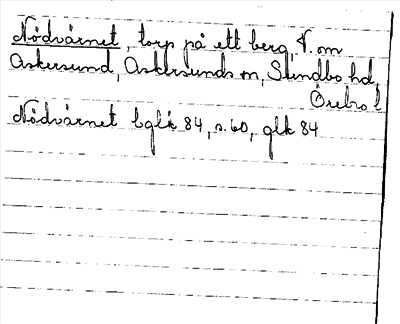 Nödvärnet, torp på ett berg V. om
Askersund, Askersunds m, Sundbo hd,
Örebro l
Nödvärnet bglk 84, s. 60, glk 84